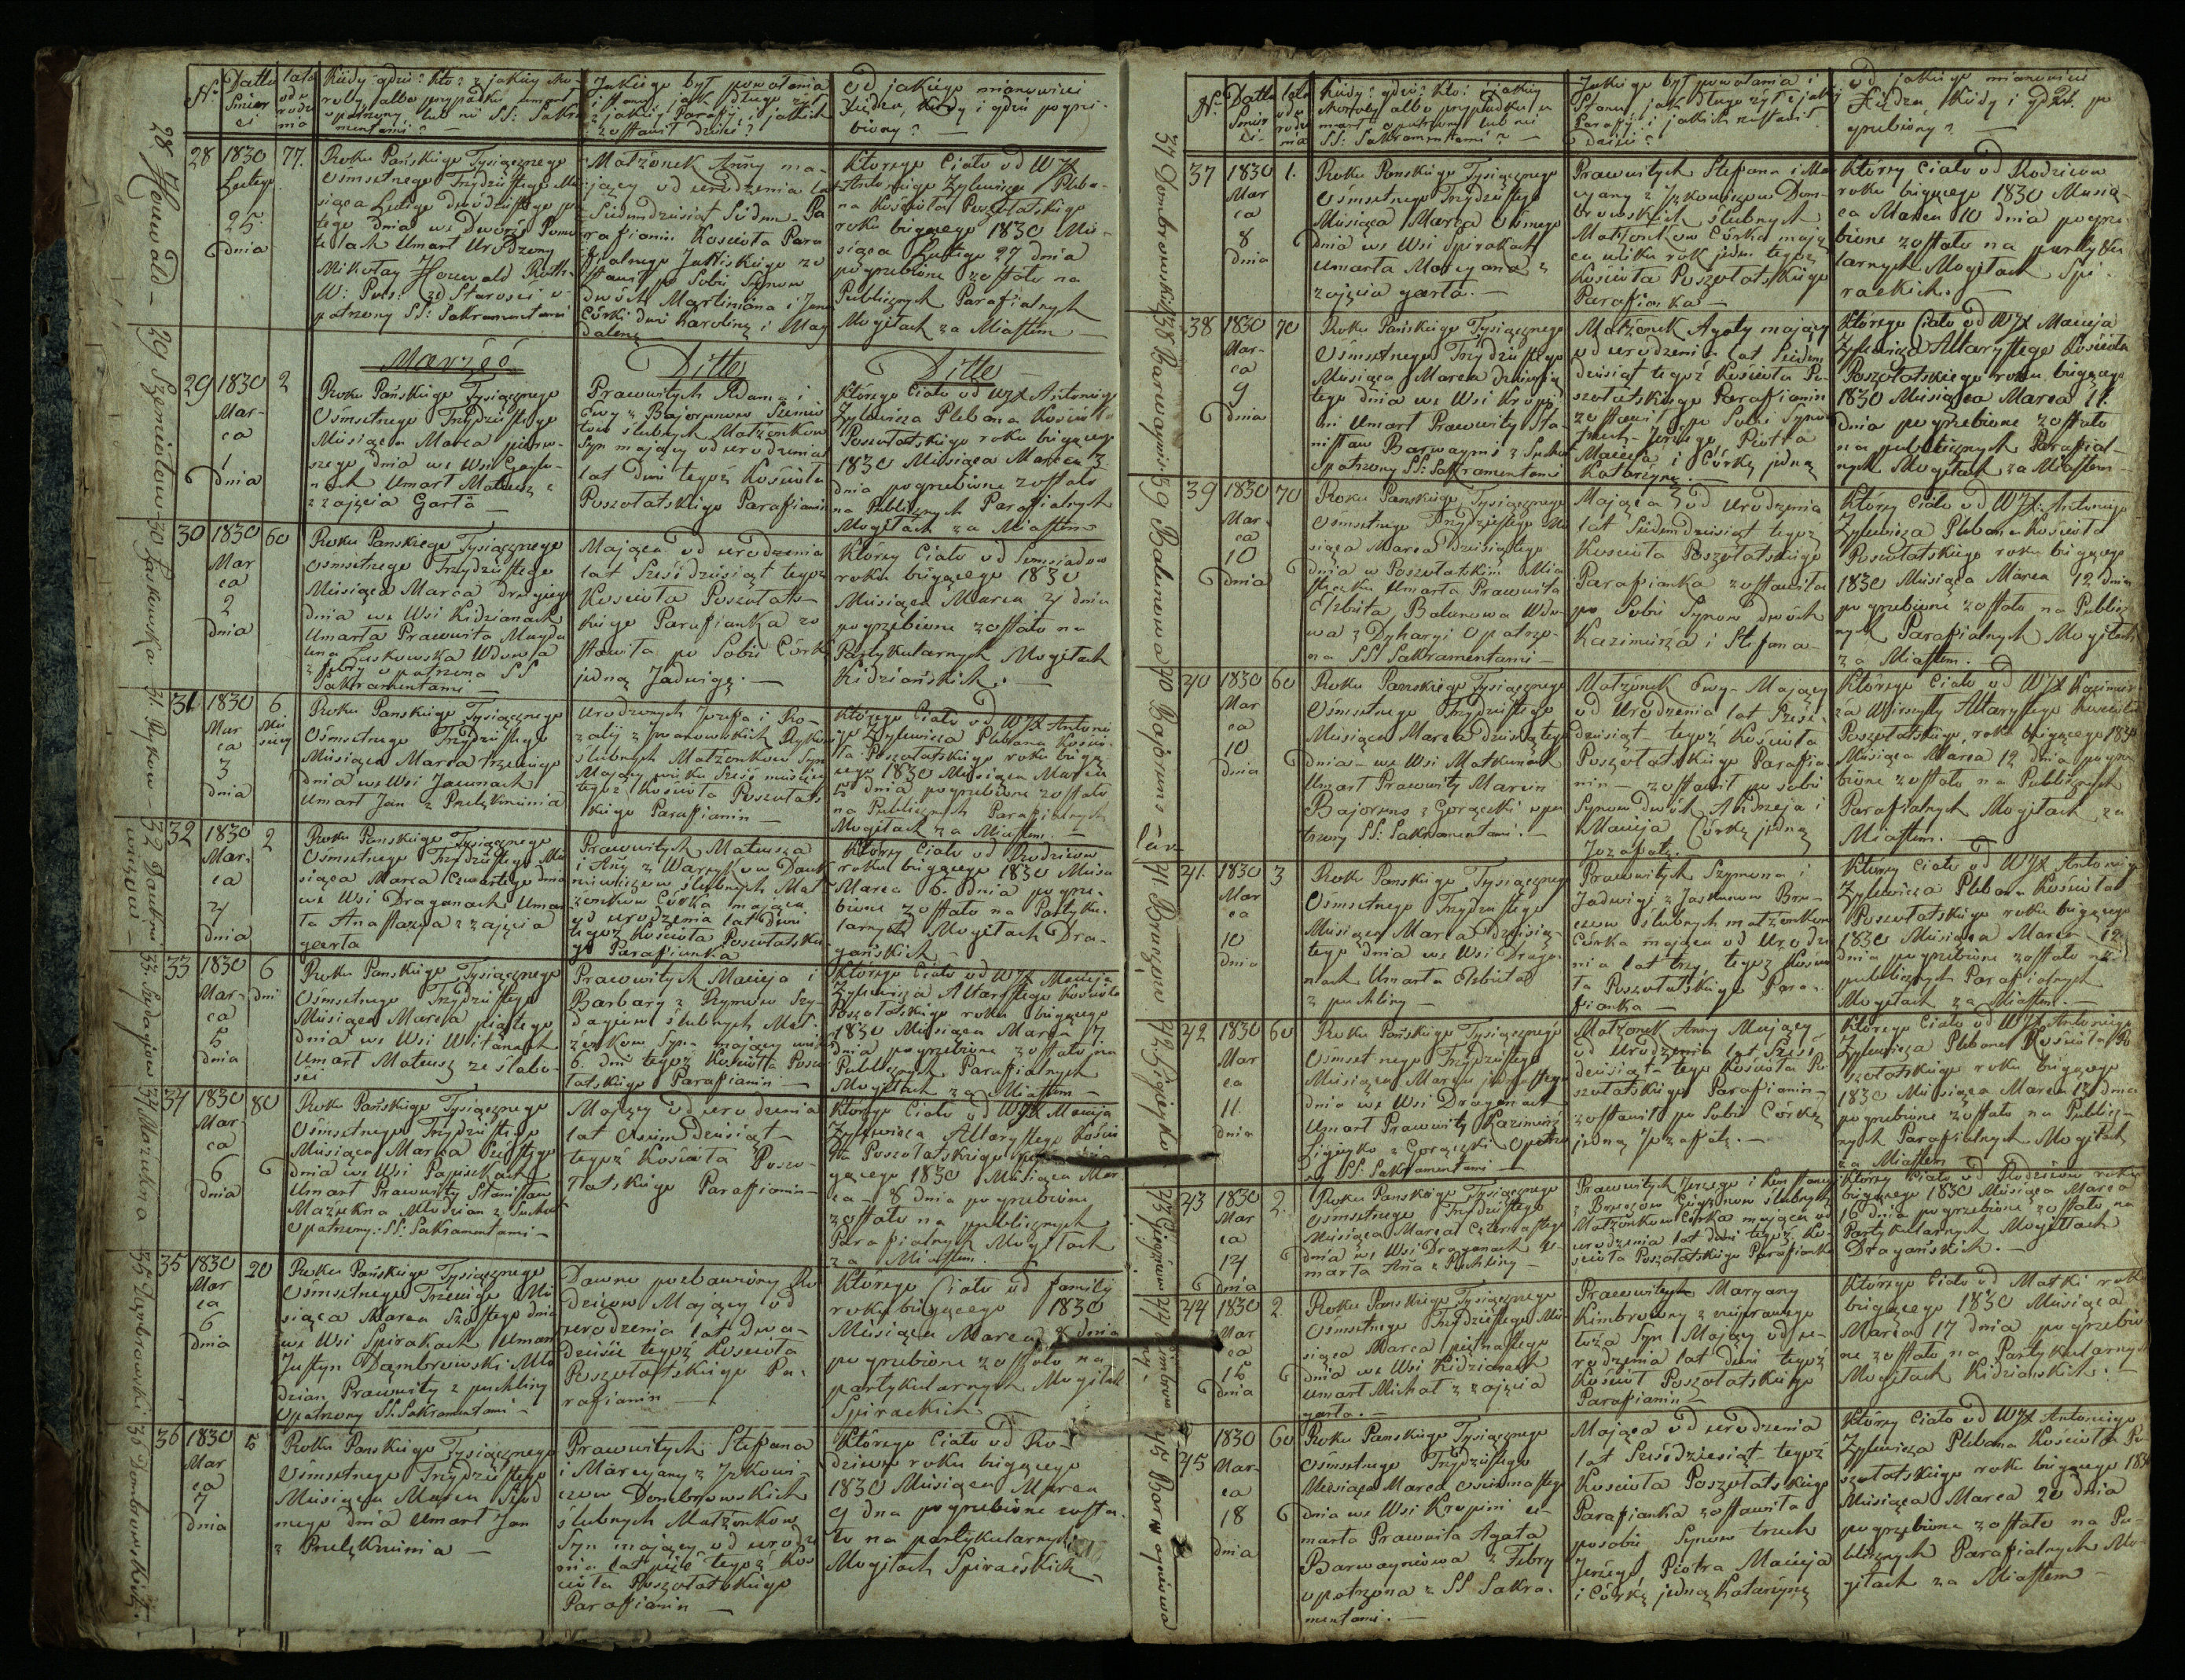 N.
Datta
Smier
ci
lata
od u
rodze
nia
Kiedy? gdzie? kto? z jakiey cho-
roby albo przypadku umarł
opatrzony lub nie SS: Sakra
mentami? —
Jakiego był powołania
i stanu, jak długo żył
z jakiey Parafij i jakich
zostawił dzieci?
Od jakiego mianowicie
Xiędza, kiedy i gdzie pogrze-
biony? —
28 Houwald —
28
1830
Lutego
25.
dnia
77.
Roku Pańskiego Tysiącznego
Osmsetnego Trzydziestego Mie
siąca Lutego dwódziestego pią
tego dnia we Dworze Pomu
szlach Umarł Urodzony
Mikołay Houwald
opatrzony SS: Sakramentami
Małżonek Anny ma-
jący od urodzenia lat
Siedmdziesiąt Siedm. Pa
rafianin Kościoła Para
fialnego
stawił po Sobie Synow
dwóch Martiniana i Jana
Córki dwie Karolinę i Mag
dalenę
Którego Ciało od WJX
Antoniego Zylewicza Pleba-
na Kościoła Poszołatskiego
roku bieżącego 1830 Mie-
siąca Lutego 27 dnia
pogrzebione zostało na
Publicznych Parafialnych
Mogiłach za Miastem
Marzec
Ditto
Ditto
29
1830
Mar-
ca
1
dnia
2
Roku Pańskiego Tysiącznego
Osmsetnego Trzydziestego
Miesiąca Marca pierw-
szego dnia we Wsi
Umarł Mateusz
z zajęcia Garła —
Prawowitych Adama i
Ewy z Bajorunow
ślubnych Małżonkow
Syn mający od urodzenia
lat dwie tegoż Kościoła
Poszołatskiego Parafianin
Którego Ciało od WJX Antoniego
Zylewicza Plebana Kościoła
Poszołatskiego roku bieżącego
1830 Miesiąca Marca 3
dnia pogrzebione zostało
na Publicznych Parafialnych
Mogiłach za Miastem
30
1830
Mar
ca
2
dnia
60
Roku Panskiego Tysiącznego
Osmsetnego Trzydziestego
Miesiąca Marca drugiego
dnia we Wsi Kidzianach
Umarła Prawowita Magda
lena Łaskowska Wdowa
z febry opatrzona SS
Sakramentami —
Mająca od urodzenia
lat Sześćdziesiąt tegoż
Kościoła Poszołats-
kiego Parafianka zo
stawiła po Sobie Córkę
jedną Jadwigę. —
Którey Ciało od Sąsiadow
roku bieżącego 1830
Miesiąca Marca 4 dnia
pogrzebione zostało na
Partykularnych Mogiłach
Kidziańskich. —
31
1830
Mar
ca
3
dnia
6
Mie
sięcy
Roku Panskiego Tysiącznego
Osmsetnego Trzydziestego
Miesiąca Marca trzeciego
dnia we Wsi Jawnach
Umarł Jan z Przelęknienia
Urodzonych Jozefa i Ro-
zalij z Iwanowskich Rykow
ślubnych Małżonkow Syn
Mający wieku Sześć miesięcy
tegoż Kościoła Poszołats
kiego Parafianin —
Którego Ciało od WJX Antonie
go Zylewicza Plebana Kościo-
ła Poszołatskiego roku bieżą
cego 1830 Miesiąca Marca
5 dnia pogrzebione zostało
na Publicznych Parafialnych
Mogiłach za Miastem. —
32
1830
Mar-
ca
4
dnia
2
Roku Panskiego Tysiącznego
Osmsetnego Trzydziestego Mie
siąca Marca Czwartego dnia
we Wsi Draganach Umar
ła Anastazya z zajęcia
garła
Prawowitych Mateusza
i Anny z
ślubnych Mał
żonkow Córka mająca
od urodzenia lat dwie
tegoż Kościoła Poszołatskie
go Parafianka
Którey Ciało od Rodzicow
roku bieżącego 1830 Miesi
Marca 6. dnia pogrze-
bione zostało na Partyku-
larnych Mogiłach Dra-
gańskich —
33
1830
Mar-
ca
5
dnia
6
dni
Roku Panskiego Tysiącznego
Osmsetnego Trzydziestego
Miesiąca Marca piątego
dnia we Wsi Witanach
Umarł Mateusz ze słabo-
ści
Prawowitych Macieja i
Barbary z Rymow Szy-
dagisow ślubnych Mał-
żonkow Syn mający wieku
6. dni tegoż Kościoła Poszo
łatskiego Parafianin —
Którego Ciało od WJX Macieja
Zylewicza Altarystego Kościoła
Poszołatskiego roku bieżącego
1830 Miesiąca Marca 7
dnia pogrzebione zostało na
Publicznych Parafialnych
Mogiłach za Miastem —
34
1830
Mar-
ca
6
dnia
80
Roku Pańskiego Tysiącznego
Osmsetnego Trzydziestego
Miesiąca Marca Szóstego
dnia we Wsi
Umarł Prawowity Stanisław
Mazukna Młodzian z Suchot
opatrzony: SS. Sakramentami —
Mający od urodzenia
lat Osiemdziesiąt —
tegoż Kościoła Poszo-
łatskiego Parafianin —
Którego Ciało od WJX Macieja
Zylewicza Altarystego Kościo
ła Poszołatskiego
1830 Miesiąca Mar
ca — 8 dnia pogrzebione
zostało na publicznych
Parafialnych Mogiłach
za Miastem.
35
1830
Mar
ca
6
dnia
20
Roku Pańskiego Tysiącznego
Osmsetnego Mie
siąca Marca Szóstego dnia
we Wsi Spirakach Umarł
Justyn Dąmbrowski Mło
dzian Prawowity z puchliny
Opatrzony SS. Sakramentami —
Dawno pozbawiony Ro
dzicow Mający od
urodzenia lat dwa-
dzieście tegoż Kościoła
Poszołatskiego Pa-
rafianin —
Którego Ciało od familij
roku bieżącego 1830
Miesiąca Marca 8 dnia
pogrzebione zostało na
partykularnych Mogiłach
Spirackich
36
1830
Mar
ca
7
dnia
5
Roku Panskiego Tysiącznego
Osmsetnego Trzydziestego
Miesiąca Marca Siod
mego dnia Umarł Jan
z Przelęknienia —
Prawowitych Stefana
i Maryany z Ickowi-
czow Dombrowskich
ślubnych Małżonkow
Syn mający od urodze
nia lat pięć tegoż Koś
cioła Poszołatskiego
Parafianin —
Którego Ciało od Ro-
dzicow roku bieżącego
1830 Miesiąca Marca
9 dnia pogrzebione zosta-
ło na partykularnych
Mogiłach Spirackich —
N.
Datta
Smier
ci-
lata
od u
rodze
nia
Kiedy? gdzie? kto? z jakiey
choroby albo przypadku u
marł opatrzony lub nie
SS: Sakramentami? —
Jakiego był powołania i
Stanu, jak długo żył z jakiey
Parafij i jakich zostawił
Dzieci?
Od jakiego mianowicie
Xiędza, kiedy i gdzie po
grzebiony? —
37
1830
Mar
ca
8
dnia
1.
Roku Panskiego Tysiącznego
Osmsetnego Trzydziestego
Miesiąca Marca Osmego
dnia we Wsi Spirakach
Umarła Maryana z
zajęcia garła. —
Prawowitych Stefana i Ma
ryany z Ickowiczow Dom-
browskich ślubnych
Małżonkow Córka mają
ca wieku rok jeden tegoż
Kościoła Poszołatskiego
Parafianka —
Którey Ciało od Rodzicow
roku bieżącego 1830 Miesią-
ca Marca 10 dnia pogrze-
bione zostało na partyku
larnych Mogiłach Spi-
rackich. —
38
1830
Mar-
ca
9
dnia
70
Roku Pańskiego Tysiącznego
Osmsetnego Trzydziestego
Miesiąca Marca dziewią
tego dnia we Wsi Krupi
ni Umarł Prawowity Sta-
nisław Barwaynis z Suchot
Opatrzony SS: Sakramentami
Małżonek Agaty mający
od urodzenia lat Siedm
dziesiąt tegoż Kościoła Po-
szołatskiego Parafianin
zostawił po Sobie Synow
trzech Jerzego, Piotra
Macieja i Córkę jedną
Katarzynę. —
Którego Ciało od WJX Macieja
Zylewicza Altarystego Kościoła
Poszołatskiego roku bieżącego
1830 Miesiąca Marca 11.
dnia pogrzebione zostało
na publicznych Parafial-
nych Mogiłach za Miastem —
39
1830
Mar-
ca
10
dnia
70
Roku Panskiego Tysiącznego
Osmsetnego Trzydziestego Mie
siąca Marca dziesiątego
dnia w Poszołatskim Mia
steczku Umarła Prawowita
Elżbieta Balunowa Wdo-
wa z Dychawicy Opatrzo-
na SS: Sakramentami —
Mająca od urodzenia
lat Siedmdziesiąt tegoż
Kościoła Poszołatskiego
Parafianka zostawiła
po Sobie Synow dwóch
Kazimierza i Stefana —
Którey Ciało od WJX: Antoniego
Zylewicza Plebana Kościoła
Poszołatskiego roku bieżącego
1830 Miesiąca Marca 12 dnia
pogrzebione zostało na Publicz
nych Parafialnych Mogiłach
za Miastem. —
40
1830
Mar
ca
10
dnia
60
Roku Panskiego Tysiącznego
Osmsetnego Trzydziestego
Miesiąca Marca dziesiątego
dnia — we Wsi Matkunach
Umarł Prawowity Marcin
Bajoruns z Gorączki opa
trzony SS: Sakramentami. —
Małżonek Ewy — Mający
od Urodzenia lat Sześć-
dziesiąt tegoż Kościoła
Poszołatskiego Parafia-
nin — zostawił po sobie
Synow dwóch Andrzeja i
Macieja Córkę jedną
Jozafatę. —
Którego Ciało od WJX Kazimier
za Altarystego Kościoła
Poszołatskiego, roku bieżącego 1830
Miesiąca Marca 12 dnia pogrze
bione zostało na Publicznych
Parafialnych Mogiłach za
Miastem. —
41.
1830
Mar
ca
10
dnia
3
Roku Panskiego Tysiącznego
Osmsetnego Trzydziestego
Miesiąca Marca dziesią-
tego dnia we Wsi Draga-
nach Umarła Elżbieta
z puchliny —
Prawowitych Szymona i
Jadwigi z
ślubnych małżonkow
Córka mająca od Urodze
nia lat trzy, tegoż Kościo
ła Poszołatskiego Para-
fianka —
Którey Ciało od WJX Antoniego
Zylewicza Plebana Kościoła
Poszołatskiego roku bieżącego
1830 Miesiąca Marca 12.
dnia pogrzebione zostało na
publicznych Parafialnych
Mogiłach za Miastem. —
42
1830
Mar
ca
11.
dnia
60
Roku Pańskiego Tysiącznego
Osmsetnego Trzydziestego
Miesiąca Marca jedenastego
dnia we Wsi Draganach
Umarł Prawowity Kazimierz
z Gorączki Opatrzo
ny SS. Sakramentami —
Małżonek Anny Mający
od Urodzenia lat Sześć
dziesiąt — tego Kościoła Po
szołatskiego Parafianin —
zostawił po Sobie Córkę
jedną Jozafatę. —
Którego Ciało od WJX Antoniego
Zylewicza Plebana Kościoła Po
szołatskiego roku bieżącego
1830 Miesiąca Marca 13 dnia
pogrzebione zostało na Publicz-
nych Parafialnych Mogiłach
za Miastem
43
1830
Mar
ca
14
dnia
2.
Roku Panskiego Tysiącznego
Osmsetnego Trzydziestego
Miesiąca Marca Czternastego
dnia we Wsi Draganach U-
marła Anna z Puchliny —
Prawowitych Jerzego i
ślubnych
Małżonkow Córka mająca od
urodzenia lat dwie tegoż Ko-
ścioła Poszołatskiego Parafianka
Którey Ciało od Rodzicow roku
bieżącego 1830 Miesiąca Marca
16 dnia pogrzebione zostało na
Partykularnych Mogiłach
Dragańskich. —
44
1830
Mar
ca
15
dnia
2.
Roku Panskiego Tysiącznego
Osmsetnego Trzydziestego Mie
siąca Marca piętnastego
dnia we Wsi Kidzianach
Umarł Michał z zajęcia
garła. —
Prawowitey Maryany
z nieprawego
łoża Syn Mający od u-
rodzenia lat dwie tegoż
Kościoła Poszołatskiego
Parafianin —
Którego Ciało od Matki roku
bieżącego 1830 Miesiąca
Marca 17 dnia pogrzebio-
ne zostało na Partykularnych
Mogiłach Kidziańskich. —
45
1830
Mar-
ca
18
dnia
60
Roku Panskiego Tysiącznego
Osmsetnego Trzydziestego
Miesiąca Marca osiemnastego
dnia we Wsi Krupini u-
marła Prawowita Agata
Barwayniowa z Febry
opatrzona z SS Sakra-
mentami. —
Mająca od urodzenia
lat Sześćdziesiąt tegoż
Kościoła Poszołatskiego
Parafianka zostawiła
po sobie Synow trzech
Jerzego, Piotra, Macieja
i Córkę jedną Katarzynę
Którey Ciało od WJX Antoniego
Zylewicza Plebana Kościoła Po-
szołatskiego roku bieżącego 1830
Miesiąca Marca 20 dnia
pogrzebione zostało na Pu-
blicznych Parafialnych Mo-
giłach za Miastem —